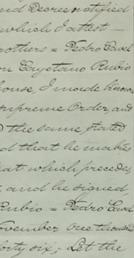 and Decree notified
which I attest—
nothers = Pedro Cevel
on Cayetano Rubio
ouse, I made known
upreme Order, and
the same, stated
d that he makes
at which precedes,
and he signed
Rubio = Pedro Cevel
November one thous
orty six, Let the